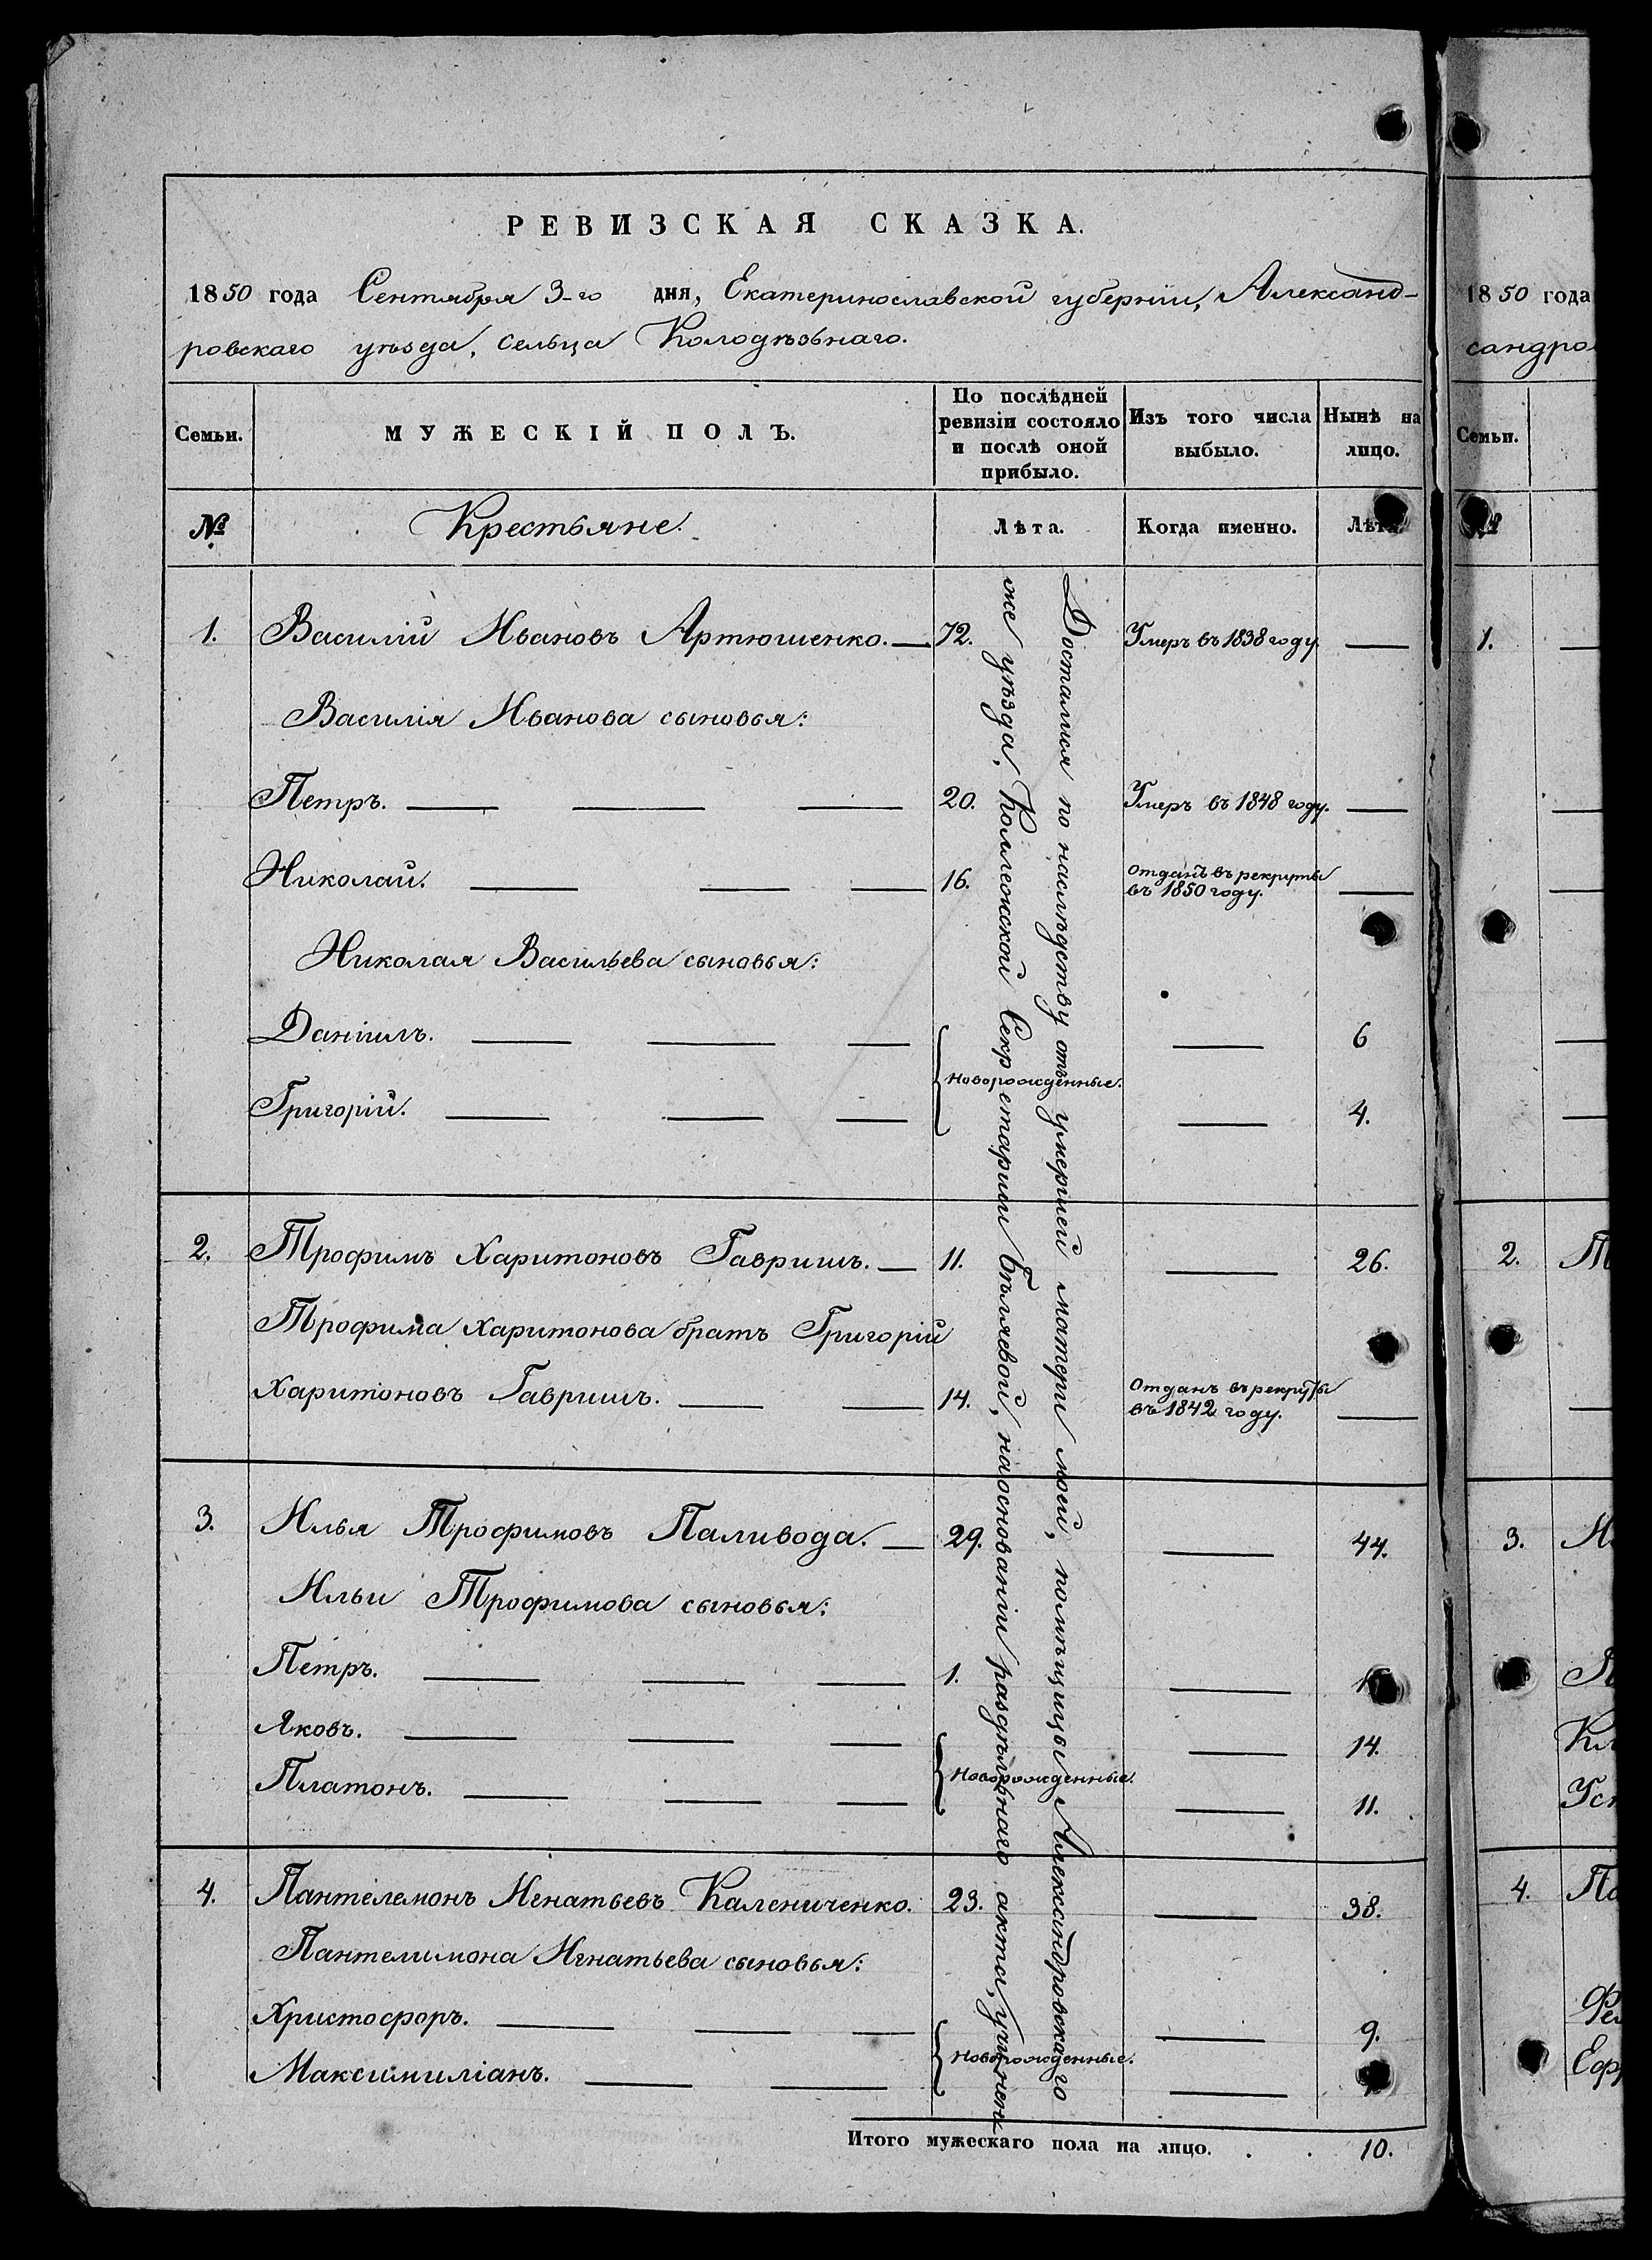 РЕВИЗСКАЯ СКАЗКА.
1850 года Сентября 3-го дня, Екатеринославской губерніи, Александ-
ровскаго уѣзда, сельца Колодѣзьнаго.
Семьи.
МУЖЕСКІЙ ПОЛЪ.
По послѣдней
ревизіи состояло
и послѣ оной
прибыло.
Изъ того числа
выбыло.
Нынѣ на
лицо.
№ Крестьяне. Лѣта. Когда именно. Лѣта.
1. Василій Ивановъ Артюшенко. — 72. Умеръ въ 1838 году. —
Василія Иванова сыновья:
Петръ. — — — 20. Умеръ въ 1848 году. —
Николай. — — — 16. отданъ въ рекруты
въ 1850 году. —
Николая Васильева сыновья:
Даніилъ. — — — — 6
новорожденные.
Григорій. — — — — 4.
2. Трофимъ Харитоновъ Гавришъ. — 11. — 26.
Трофима Харитонова братъ Григорій
Харитоновъ Гавришъ. — — 14. Отданъ въ рекруты
въ 1842 году. —
3. Илья Трофимовъ Паливода. — 29. — 44.
Ильи Трофимова сыновья:
Петръ. — — — 1. —
Яковъ. — — — — 14.
Новорожденные.
Платонъ. — — — — 11.
4. Пантелемонъ Игнатьевъ Калениченко. 23. — 38.
Пантелимона Игнатьева сыновья:
Христофоръ. — — — — 9.
Новорожденные.
Максимиліанъ. — — —
Итого мужескаго пола на лицо. . . 10.
Достался по наслѣдству отъ умершей матери моей, помѣщицы Александровскаго
же уѣзда, Коллежской Секретарши Бѣляевой, на основаніи раздѣльнаго акта, учинен
1850 года
сандро
Семьи.
№
1.
2.
3.
4.